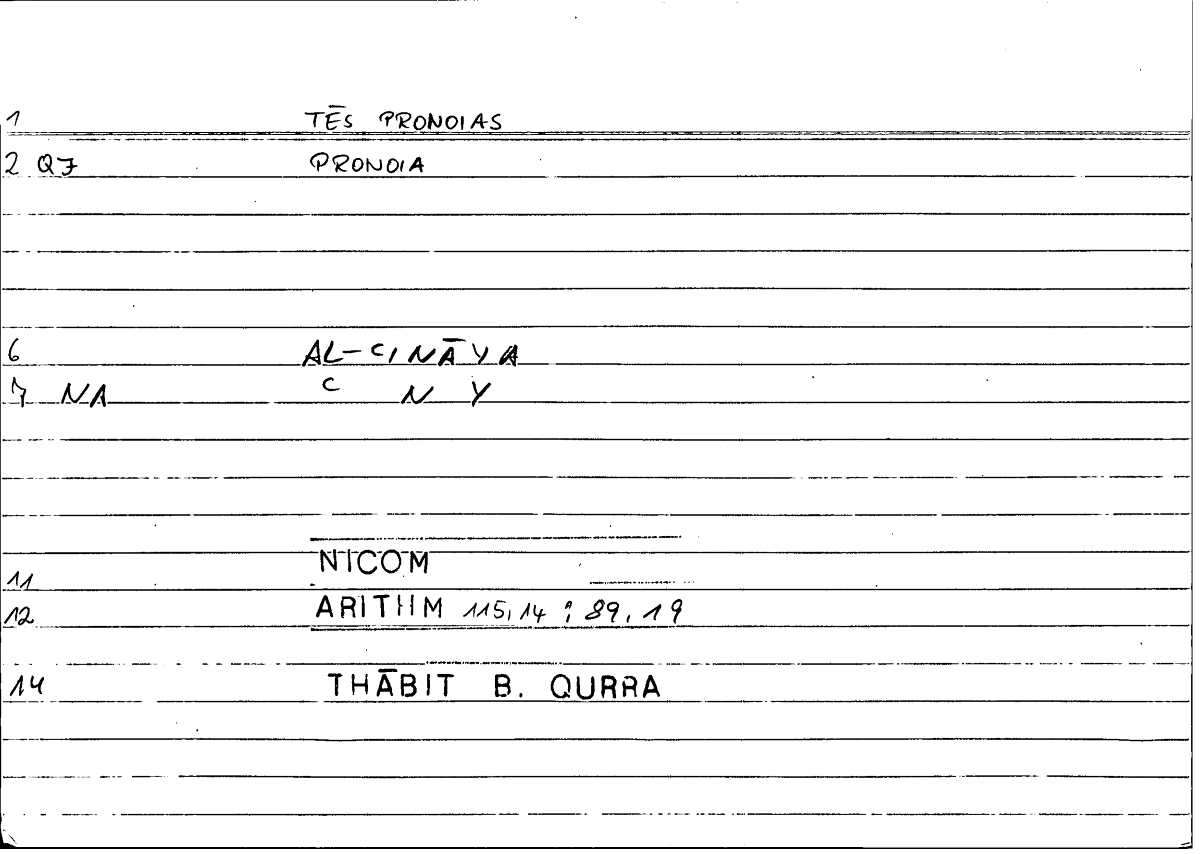 1 TĒS PRONOIAS
2 QJ PRONOIA
6 AL-CINĀYA
7 NA C N Y
11 NICOM
12 ARITHM 115,14 ; 89,19
14 THĀBIT B. QURRA